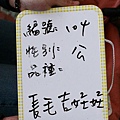 編號: 104
性別: 公
品種:
長毛吉娃娃